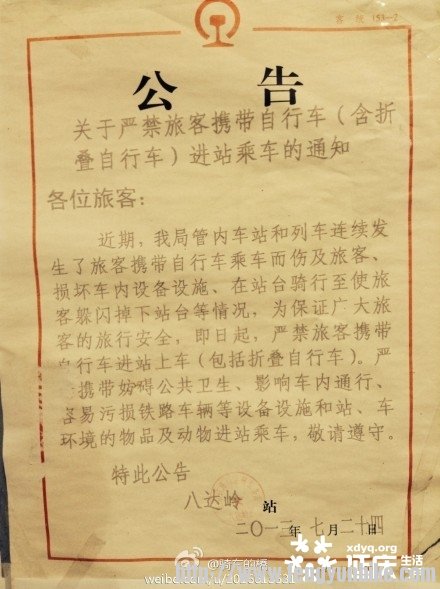 153-2
公告
关于严禁旅客携带自行车（含折
叠自行车）进站乘车的通知
各位旅客：
近期，我局管内车站和列车连续发
生了旅客携带自行车乘车而伤及旅客、
损坏车内设备设施、在站台骑行至使旅
客躲闪掉下站台等情况，为保证广大旅
客的旅行安全，即日起，严禁旅客携带
自行车进站上车（包括折叠自行车）。严
携带妨碍公共卫生、影响车内通行、
容易污损铁路车辆等设备设施和站、车
环境的物品及动物进站乘车，敬请遵守。
特此公告
八达岭 站
二〇一二年七月二十四日
xdyq.org
延庆生活